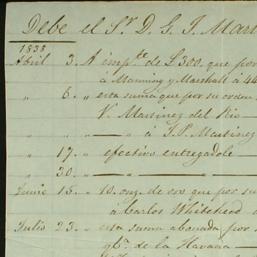 Debe el Sr. D. G. J. Mar
1838
Abril 3. " A impte. de £300. que por
á Manning y Marshall á 44
" 5. " esta suma que por su orden
V. Martinez del Rio
" " " — á J. P. Martinez
" 17. " efectivo entregadole
" 30. " —
Junio 15. " 10. onz. de oro que por su
á Carlos Whitehead
Julio 23. " esta suma abonada por
de la Havana —